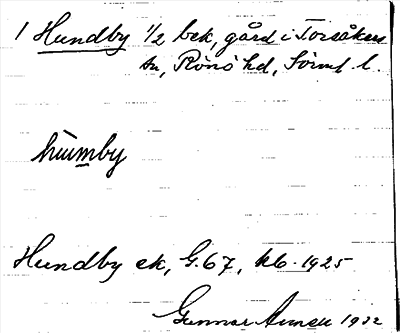 1 Hundby 1/2 bek, gård i Torsåkers
sn, Rönö hd, Sörml. l.
hu̅m̲by
Hundby ek, G. 67, kb. 1925
Gunnar 1932